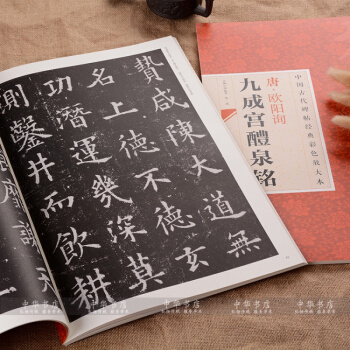 贄咸陳大道無
名上德不德玄
功潛運幾深莫
測鑿井而飲耕
中国古代碑帖经典彩色放大本
唐 欧阳询
九成宫醴泉铭
中华书店
中华书店
中华书店